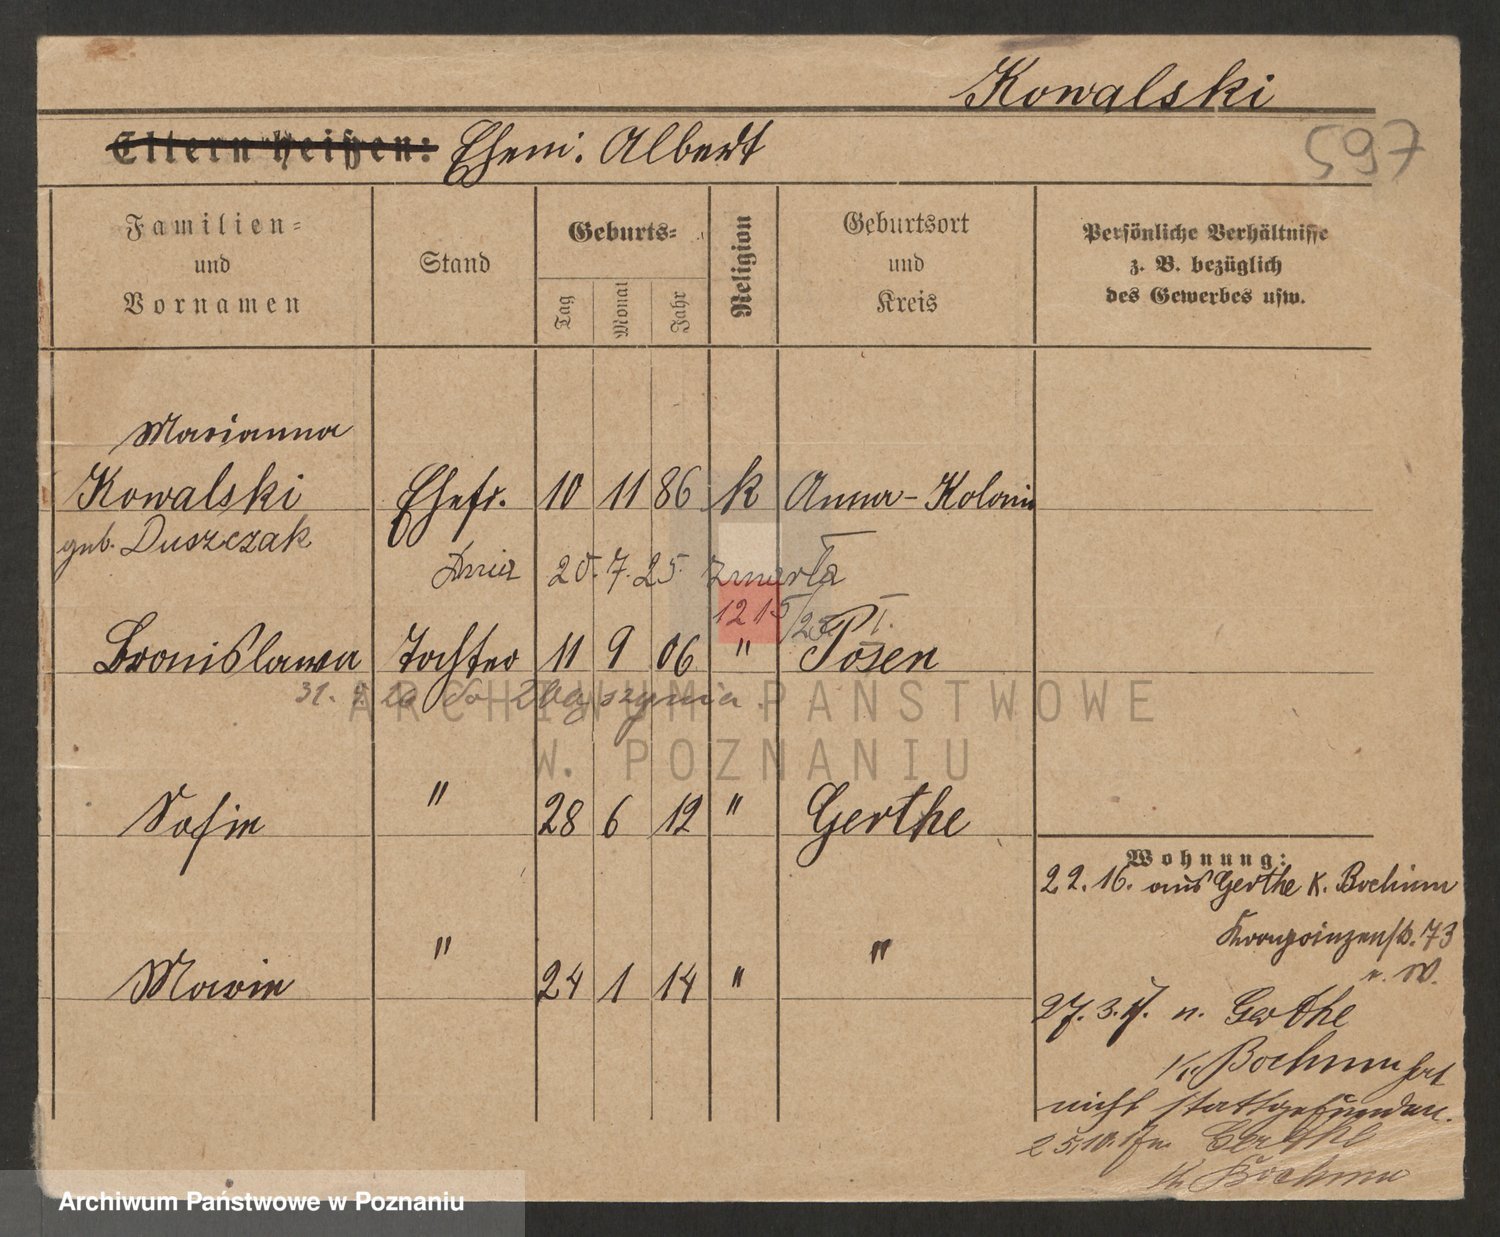 Kowalski
Eltern heißen: Ehem. Albert
597
Familien-
und
Vornamen
Stand
Geburts-
Tag
Monat
Jahr
Religion
Geburtsort
und
Kreis
Persönliche Verhältnisse
z. B. bezüglich
des Gewerbes usw.
Marianna
Kowalski Ehefr. 10 11 86 k Anna-Kolonie
geb. Duszczak
Dnia 20. 7. 25. zmarła
1215/25 I.
Bronislawa Tochter 11 9 06 " Posen
31. 26 do Zbąszynia.
Sofie " 28 6 12 " Gerthe
Marie " 24 1 14 " "
Wohnung:
22.16. aus Gerthe K. Bochum
Kronprinzenstr. 73
n. W.
27. 3. 17. n. Gerthe
K. Bochum hat
nicht stattgefunden.
25.10.17 n. Gerthe
K. Bochum
ARCHIWUM PAŃSTWOWE
W. POZNANIU
Archiwum Państwowe w Poznaniu